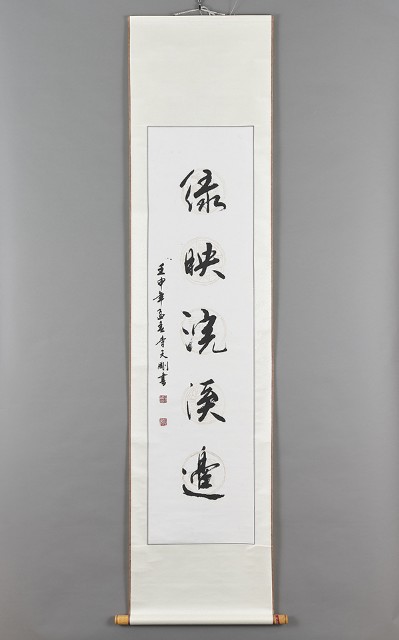 緑映浣溪邊
壬申年孟春李天剛書